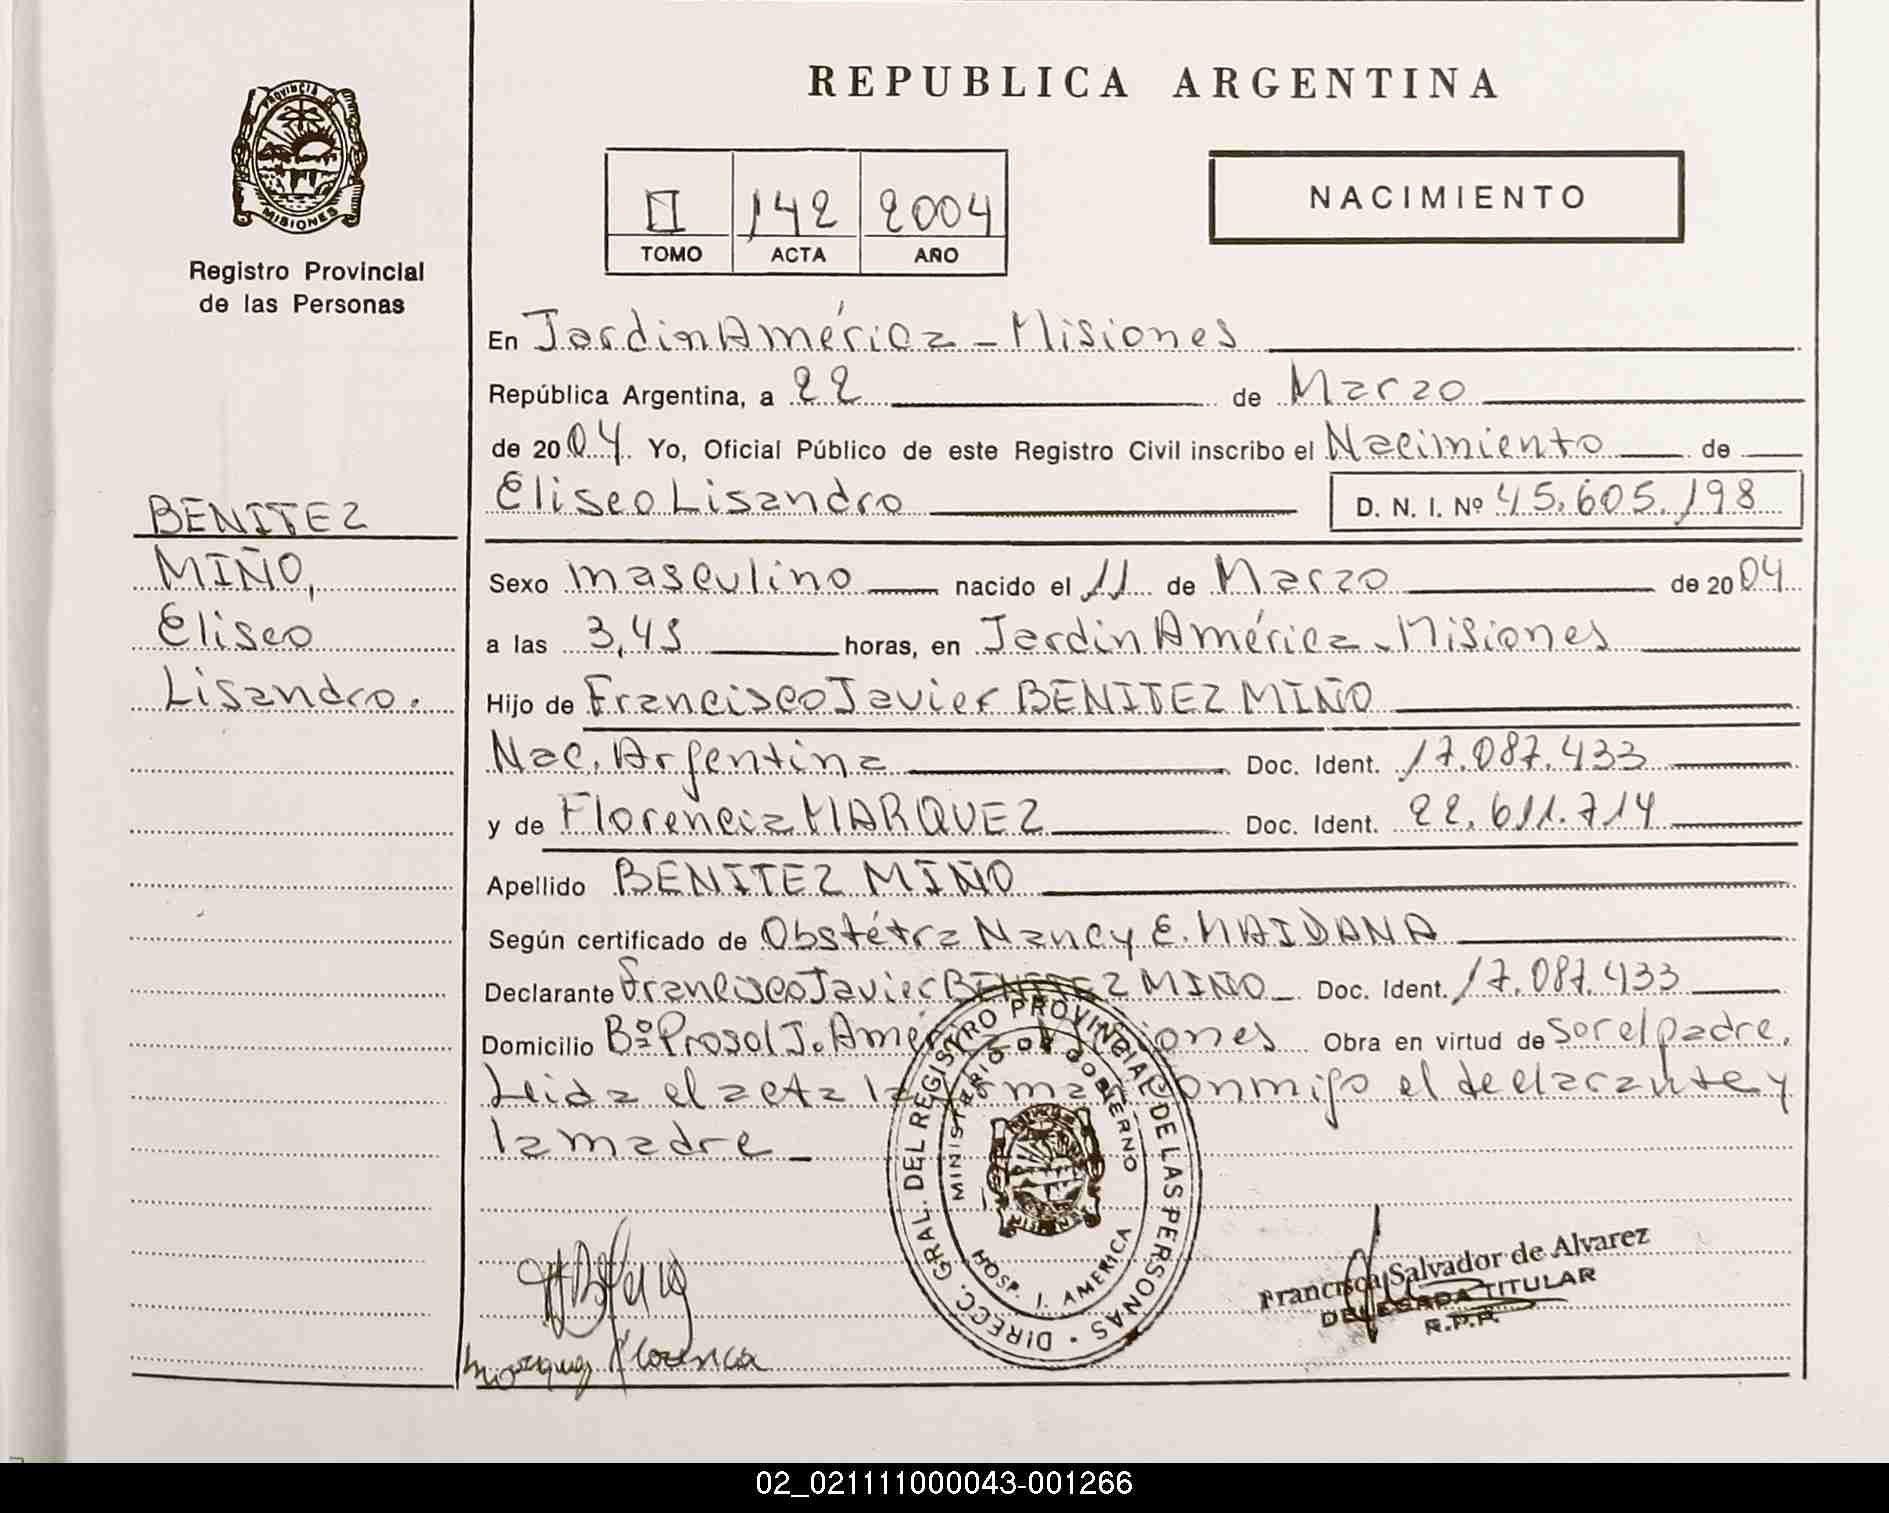 PROVINCIA DE
MISIONES
Registro Provincial
de las Personas
BENITEZ
MIÑO,
Eliseo
Lisandro.
REPUBLICA ARGENTINA
II 142 2004
TOMO ACTA AÑO
NACIMIENTO
En Jardin América - Misiones
República Argentina, a 22 de Marzo
de 2004 Yo, Oficial Público de este Registro Civil inscribo el Nacimiento de
Eliseo Lisandro D. N. I. Nº 45.605.198
Sexo masculino nacido el 11 de Marzo de 2004
a las 3,45 horas, en Jardin América - Misiones
Hijo de Francisco Javier BENITEZ MIÑO
Nac. Argentina Doc. Ident. 17.087.433
y de Florencia MARQUEZ Doc. Ident. 22.611.714
Apellido BENITEZ MIÑO
Según certificado de Obstétra Nancy E. MAIDANA
Declarante Francisco Javier BENITEZ MIÑO Doc. Ident. 17.087.433
Domicilio Bº Prosol J. América Misiones Obra en virtud de Sor el padre.
Leida el acta la firma conmigo el declarante y
la madre
DIRECC. GRAL. DEL REGISTRO PROVINCIAL DE LAS PERSONAS
MINISTERIO DE GOBIERNO
HOSP. J. AMERICA
MISIONES
Francisca Salvador de Alvarez
DELEGADA TITULAR
R.P.P.
Marquez Florencia
02_021111000043-001266